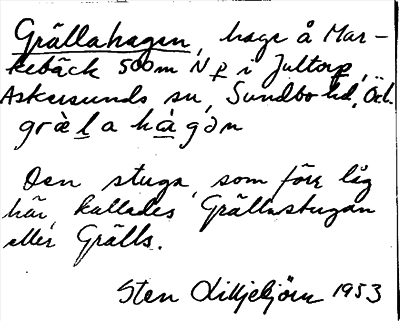 Grällahagen, hage å Mar-
kebäck 500m N p i Jultorp,
Askersunds sn, Sundbo hd, Ör.
gràl̲a hàgən
Den stuga, som förr låg
här, kallades Grällastugan
eller Grälls.
Sten Liljebjörn 1953